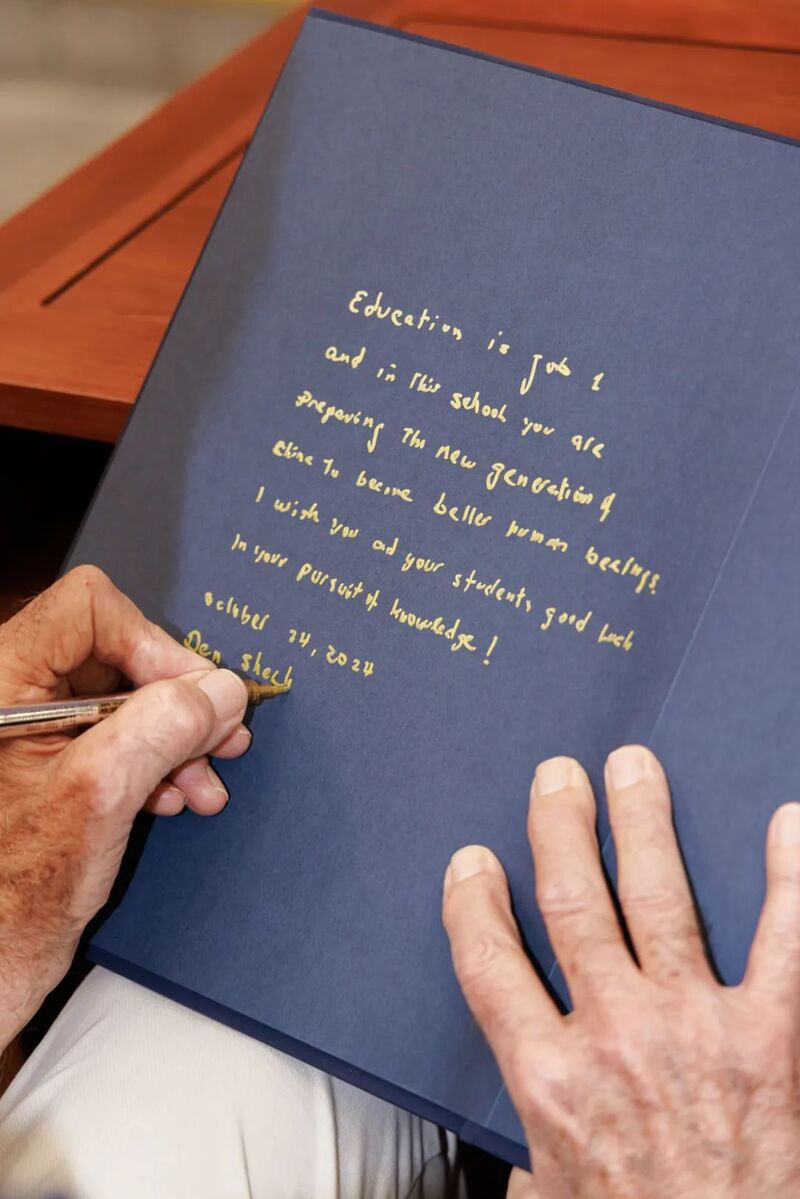 Education is job 1
and in this school you are
preparing The new generation of
China To become better human beeings.
I wish you and your students good luck
In your pursuit of knowledge!
october 24, 2024
Dan shech